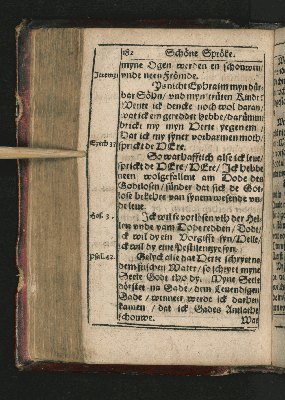 182 Schöne Spröke.
myne Ogen werden en schouwen/
vnde neen Frömde.
Jerem 31 Ys nicht Ephraim myn dür-
bar Söhn/ vnd myn trüten Kindt?
Wente ick dencke noch wol daran/
wat ick em gereddet hebbe/ darümme
brickt my myn Herte yegen em/
Dat ick my syner vorbarmen moth/
sprickt de HEre.
Ezech 33 So warhafftich alse ick leue/
sprickt de HEre/ HEre/ Ick hebbe
neen wolgefallent am Dode des
Godtlosen/ sünder dat sick de Got-
lose bekehre van synem wesende vn-
de leue.
Hos. 13. Ick wil se vorlösen vth der Hel-
len vnde vam Dode redden/ Dodt/
ick wil dy ein Vorgifft syn/ Helle/
ick wil dy eine Pestilentze syn.
Psal. 42. Gelyck alse dat Herte schryet na
dem frischen Water/ so schryet myne
Seele Godt tho dy. Myne Seele
dörstet na Gade/ dem Leuendigen
Gade/ wenneer werde ick darhen
kamen/ dat ick Gades Antlath
schouwe.
Wat